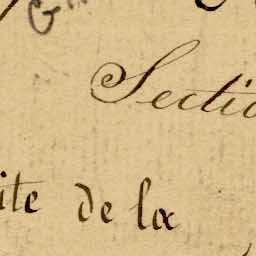 G
Sectio
ite de la